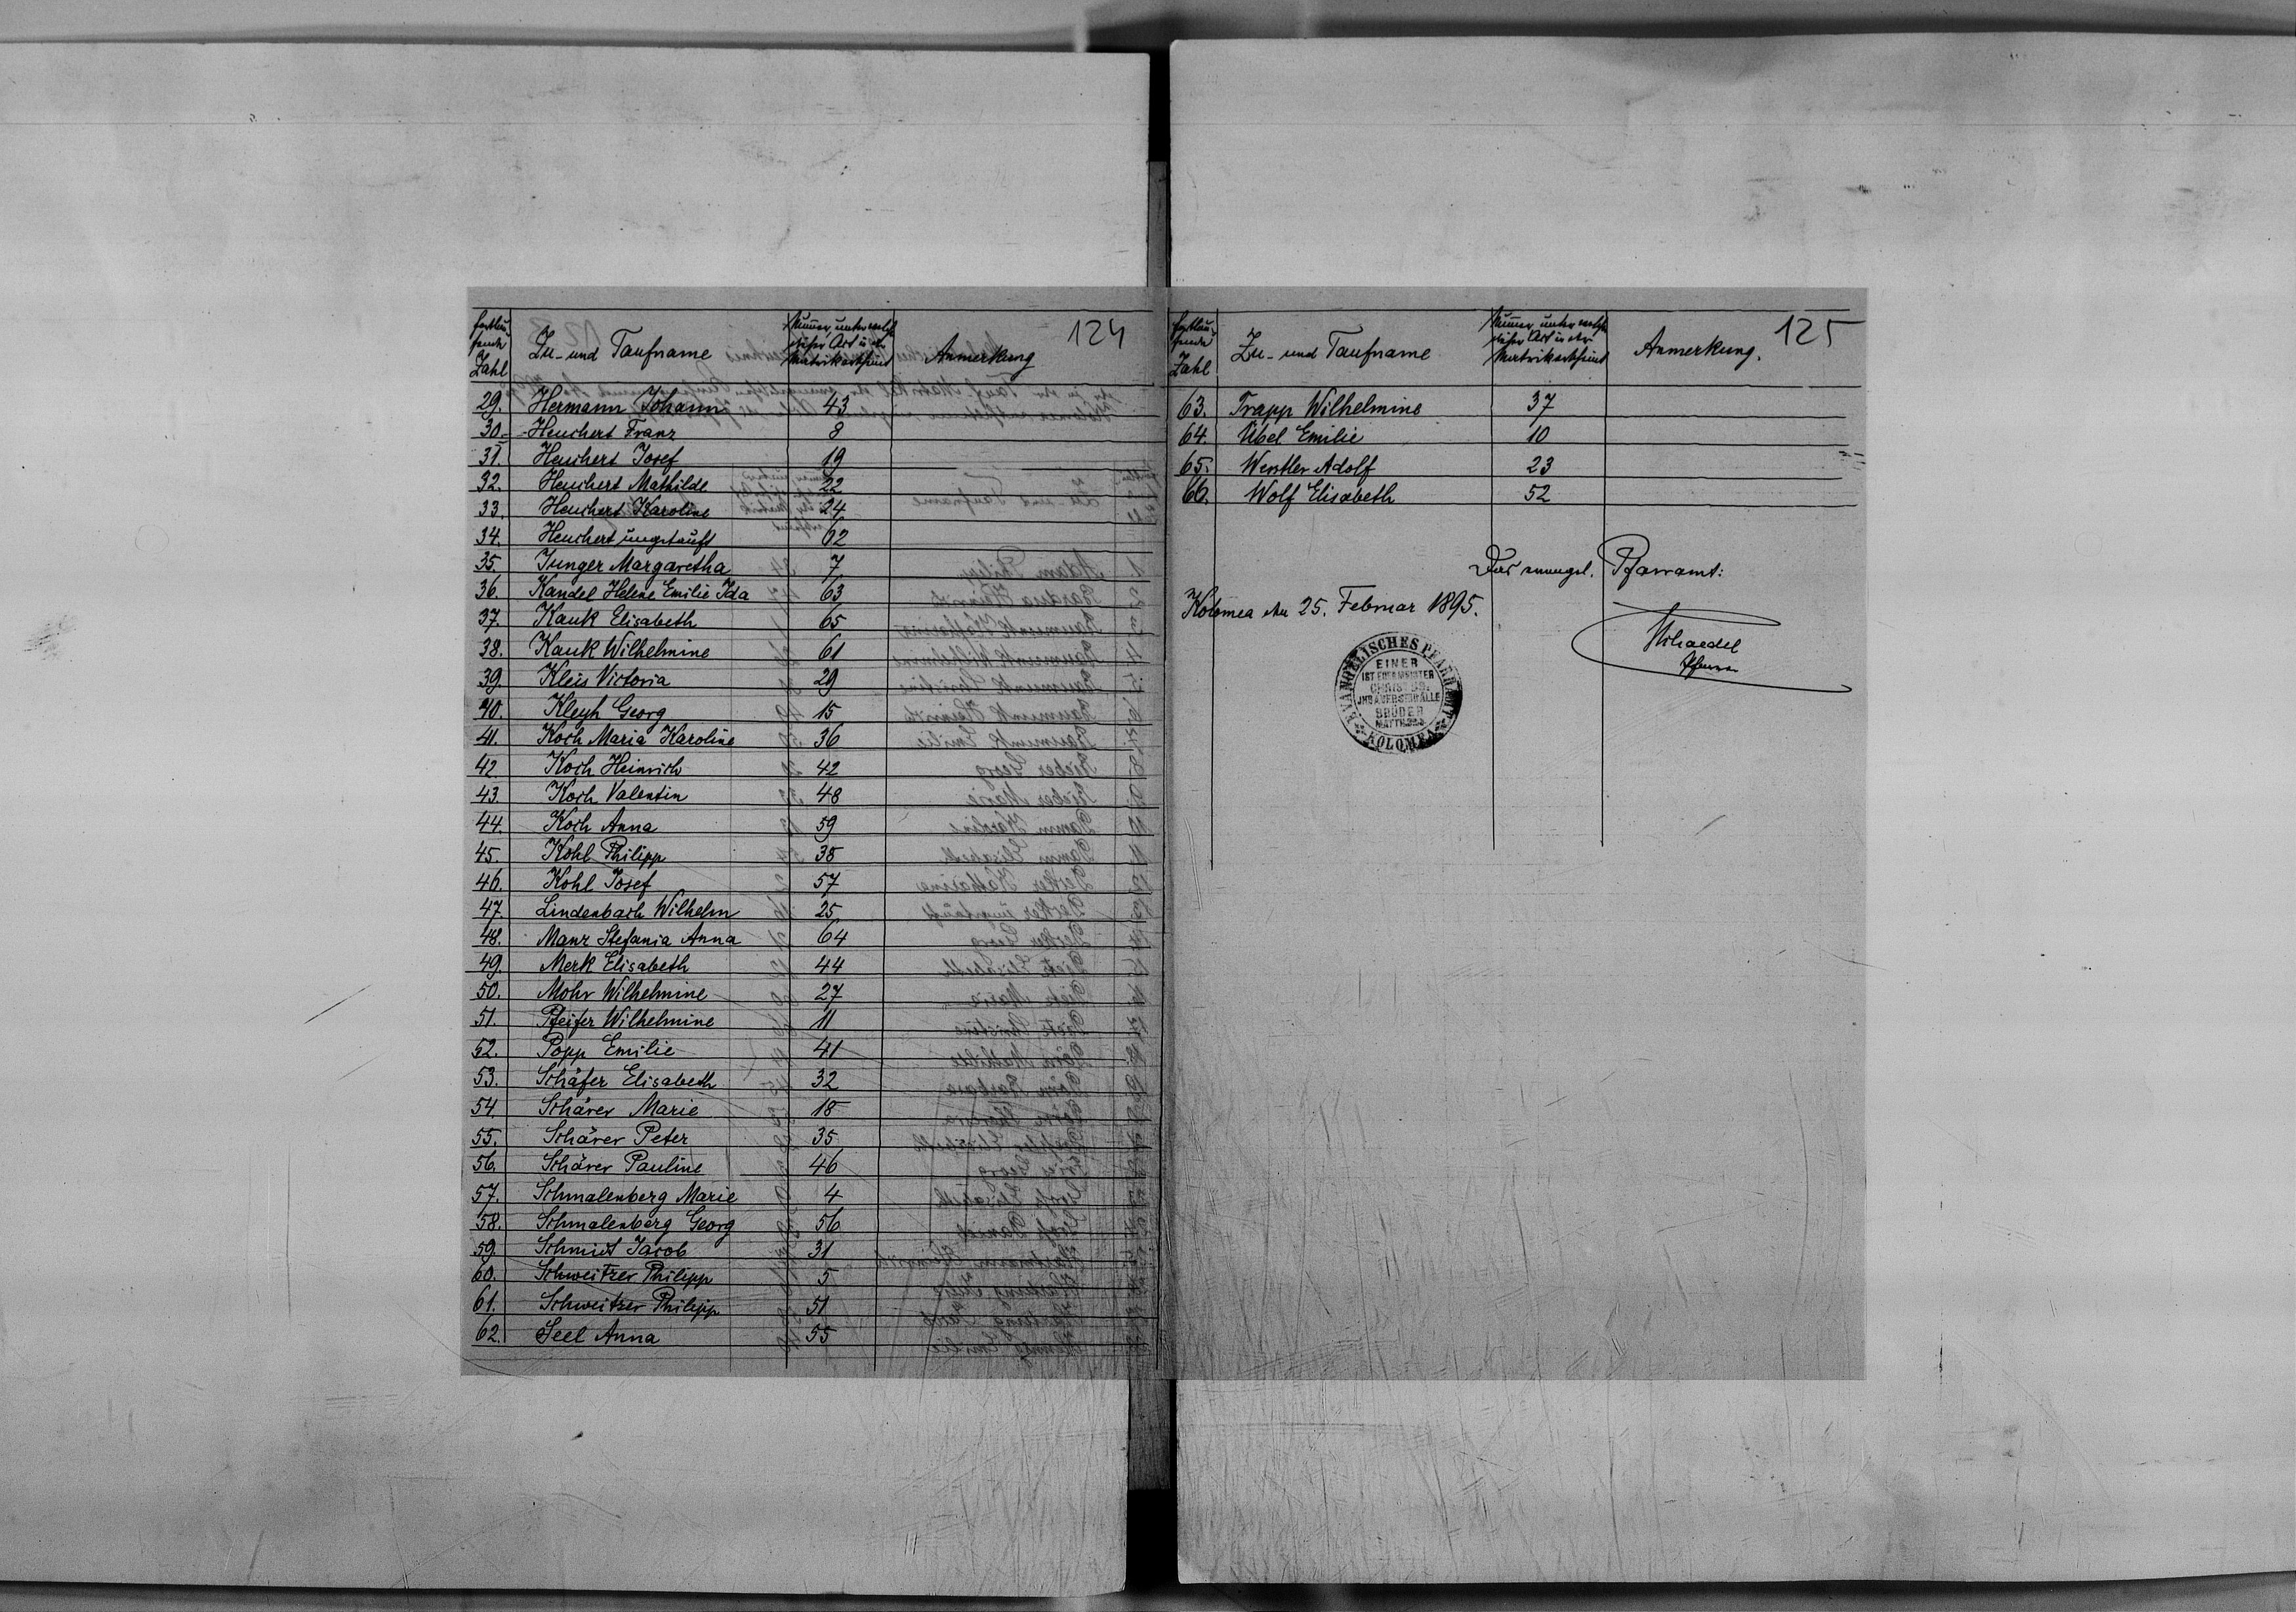 124
fortlau-
fende
Zahl
Zu- und Taufname
Nummer, unter welcher
dieser Act in der
Matrik erscheint
Anmerkung
29. Hermann Johann 43
30. Heuchert Franz 8
31. Heuchert Josef 19
32. Heuchert Mathilde 22
33. Heuchert Karoline 24
34. Heuchert ungetauft 62
35. Junger Margaretha 7
36. Kandel Helene Emilie Ida 63
37. Kauk Elisabeth 65
38. Kauk Wilhelmine 61
39. Kleis Victoria 29
40. Kleyh Georg 15
41. Koch Maria Karoline 36
42 Koch Heinrich 42
43. Koch Valentin 48
44. Koch Anna 59
45. Kohl Philipp 38
46. Kohl Josef 57
47. Lindenbach Wilhelm 25
48. Manz Stefania Anna 64
49. Merk Elisabeth 44
50. Mohr Wilhelmine 27
51. Pfeifer Wilhelmine 11
52. Popp Emilie 41
53. Schäfer Elisabeth 32
54. Schärer Marie 18
55. Schärer Peter 35
56. Schärer Pauline 46
57. Schmalenberg Marie 4
58. Schmalenberg Georg 56
59. Schmidt Jacob 31
60. Schweitzer Philipp 5
61. Schweitzer Philipp 51
62. Seel Anna 55
125
fortlau-
fende
Zahl
Zu- und Taufname
Nummer, unter welcher
dieser Act in der
Matrik erscheint
Anmerkung.
63. Trapp Wilhelmine 37
64. Übel Emilie 10
65. Wendler Adolf 23
66. Wolf Elisabeth 52
Das evangel. Pfarramt:
Kolomea den 25. Februar 1895.
Pfarrer
EVANGELISCHES PFARRAMT
KOLOMEA
EINER
IST EUER MEISTER
CHRISTUS.
IHR ABER SEID ALLE
BRÜDER